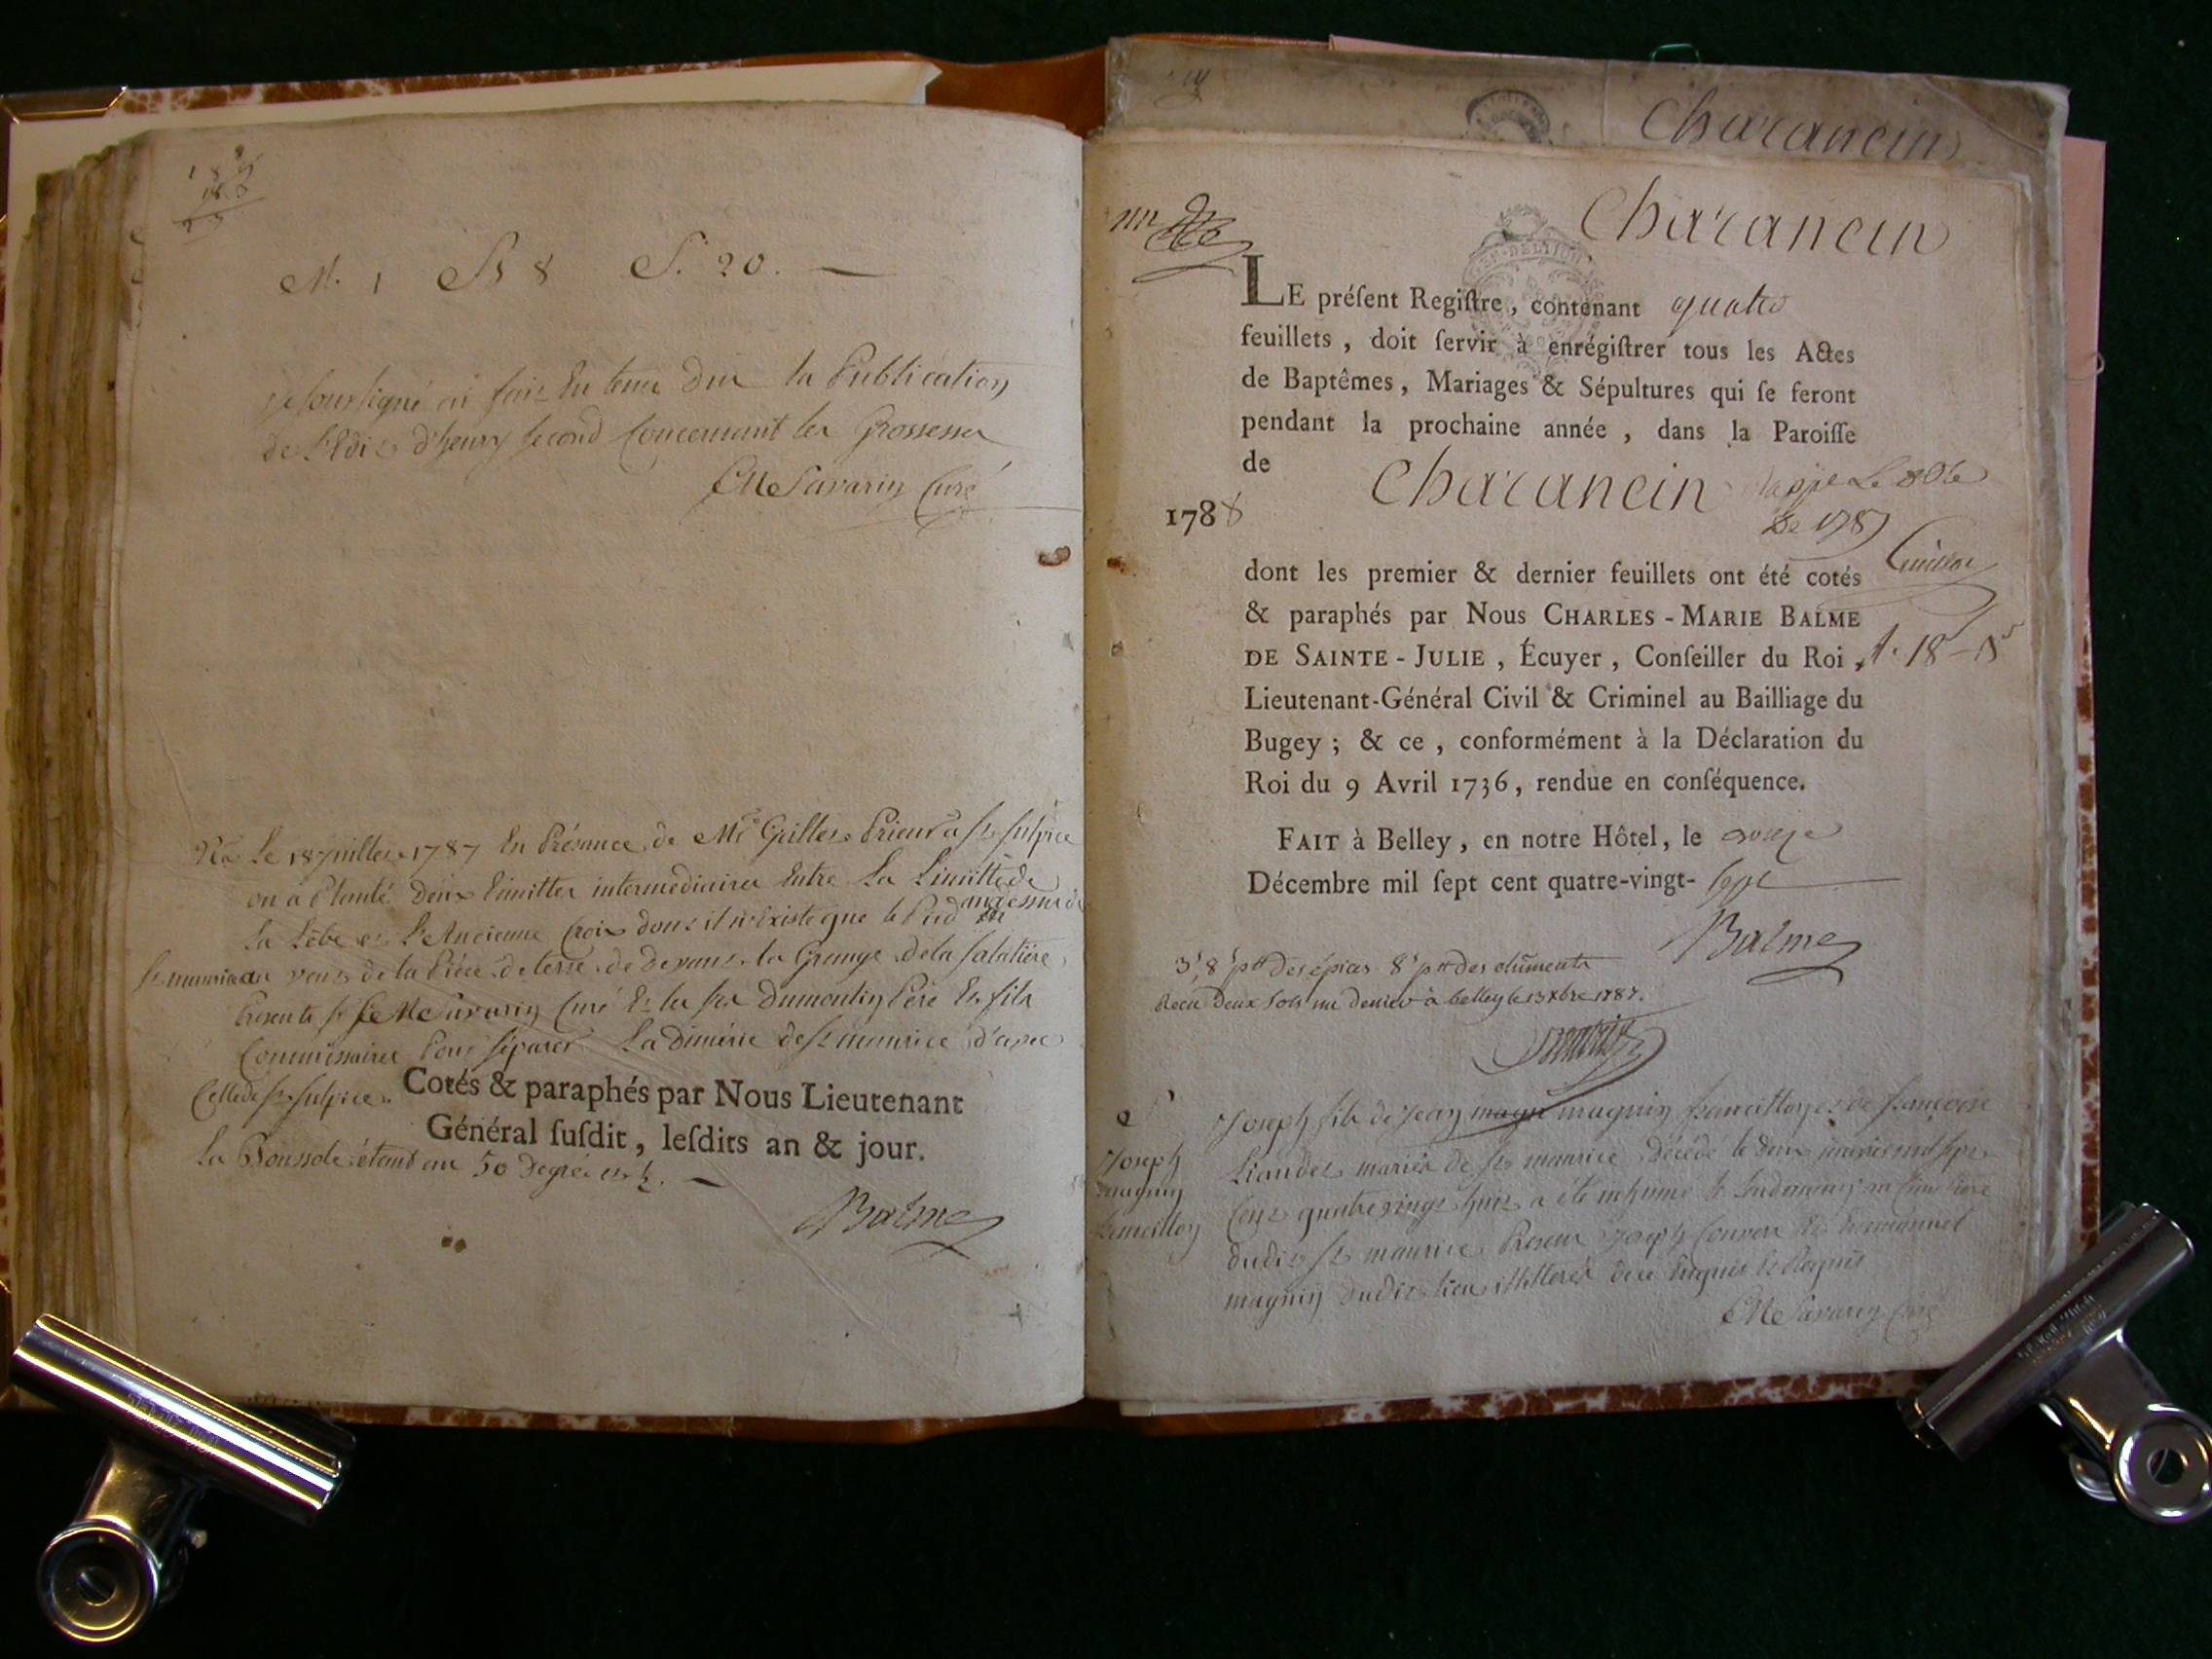 M. 1 B 8 S. 20.
je soussigné ai fait en tems du la Publication
de l'Edit d'henry second Concernant les Grossesses
Savarin Curé
Le 18 juillet 1787 En Présance de Mr Grillet Prieur a st sulpice
on a Planté Deux Limittes intermediaires Entre La Limitte de
La Lèbe et L'Ancienne Croix dont il n'Existe que le Pied
st maurice au vent de la Pièce de terre de devant la Grange de la salatière
Présents Savarin Curé Et les srs Dumoulin Père Et fils
Commissaires Pour séparer La Dimerie de st maurice d'avec
Celle de st sulpice.
Cotés & paraphés par Nous Lieutenant
Général ſuſdit, leſdits an & jour.
La Boussole étant au 50 Degrés et ½.
Balme
Charancin
Charancin
LE préſent Regiſtre, contenant quatre
feuillets, doit ſervir à enrégiſtrer tous les Actes
de Baptêmes, Mariages & Sépultures qui ſe feront
pendant la prochaine année, dans la Paroiſſe
de Charancin
1788
dont les premier & dernier feuillets ont été cotés
& paraphés par Nous CHARLES-MARIE BALME
DE SAINTE-JULIE, Écuyer, Conſeiller du Roi,
Lieutenant-Général Civil & Criminel au Bailliage du
Bugey; & ce, conformément à la Déclaration du
Roi du 9 Avril 1736, rendue en conſéquence.
FAIT à Belley, en notre Hôtel, le onze
Décembre mil ſept cent quatre-vingt-sept
Balme
Recu Deux sols un denier à belley le 13 xbre 1787.
Joseph
magnin
francillon
Joseph fils de Jean magn magnin francillon et de françoise
Liaudet mariés de st maurice décédé le deux janvier mil sept
Cent quatre vingt huit a été inhumé le lendemain au Cimetière
dudit st maurice Présent Joseph Et Emmanuel
magnin dudit lieu illitterés de ce Enquis Et Requis
Savarin Curé